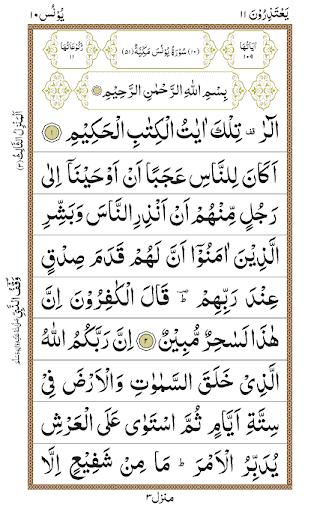 يَعْتَذِرُوْنَ ١١
يُوْنُس ١٠
اٰيَاتُهَا ١٠٩
(١٠) سُوْرَةُ يُوْنُسَ مَكِّيَّةٌ (٥١)
رُكُوْعَاتُهَا ١١
بِسْمِ اللّٰهِ الرَّحْمٰنِ الرَّحِيْمِ
الٓرٰ ۫ تِلْكَ اٰيٰتُ الْكِتٰبِ الْحَكِيْمِ ۝١
اَكَانَ لِلنَّاسِ عَجَبًا اَنْ اَوْحَيْنَاۤ اِلٰى
رَجُلٍ مِّنْهُمْ اَنْ اَنْذِرِ النَّاسَ وَبَشِّرِ
الَّذِيْنَ اٰمَنُوْۤا اَنَّ لَهُمْ قَدَمَ صِدْقٍ
عِنْدَ رَبِّهِمْ ؕ قَالَ الْكٰفِرُوْنَ اِنَّ
هٰذَا لَسٰحِرٌ مُّبِيْنٌ ۝٢ اِنَّ رَبَّكُمُ اللّٰهُ
الَّذِىْ خَلَقَ السَّمٰوٰتِ وَالْاَرْضَ فِىْ
سِتَّةِ اَيَّامٍ ثُمَّ اسْتَوٰى عَلَى الْعَرْشِ
يُدَبِّرُ الْاَمْرَ ؕ مَا مِنْ شَفِيْعٍ اِلَّا
اَلْمَنْزِلُ الثَّالِثُ (٣)
وَقْفُ النَّبِىِّ
منزل ٣